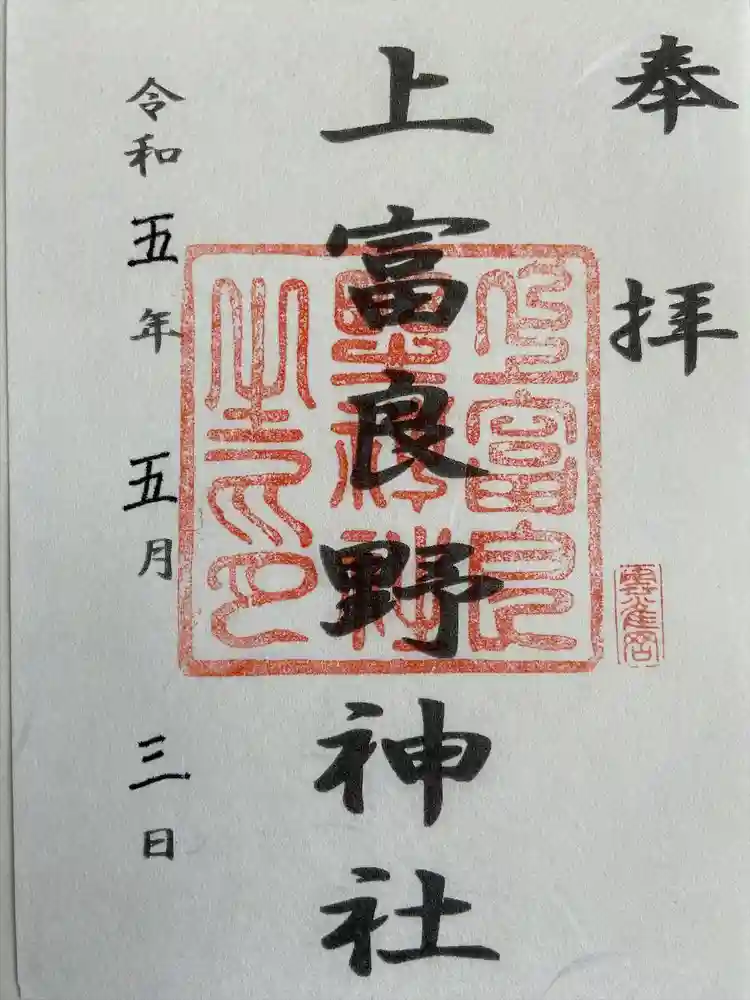 奉拝
上富良野神社
上富良
野神社
之印
令和五年五月三日